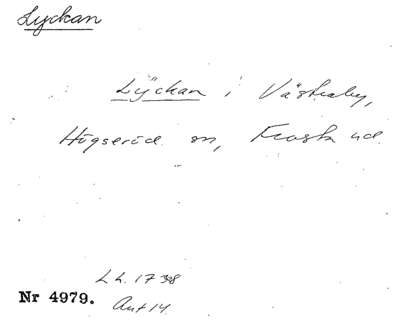 Lyckan
Lyckan i Västraby,
Högseröd sn, Frosta hd.
Lh. 1738
Nr 4979.
Ant 14.